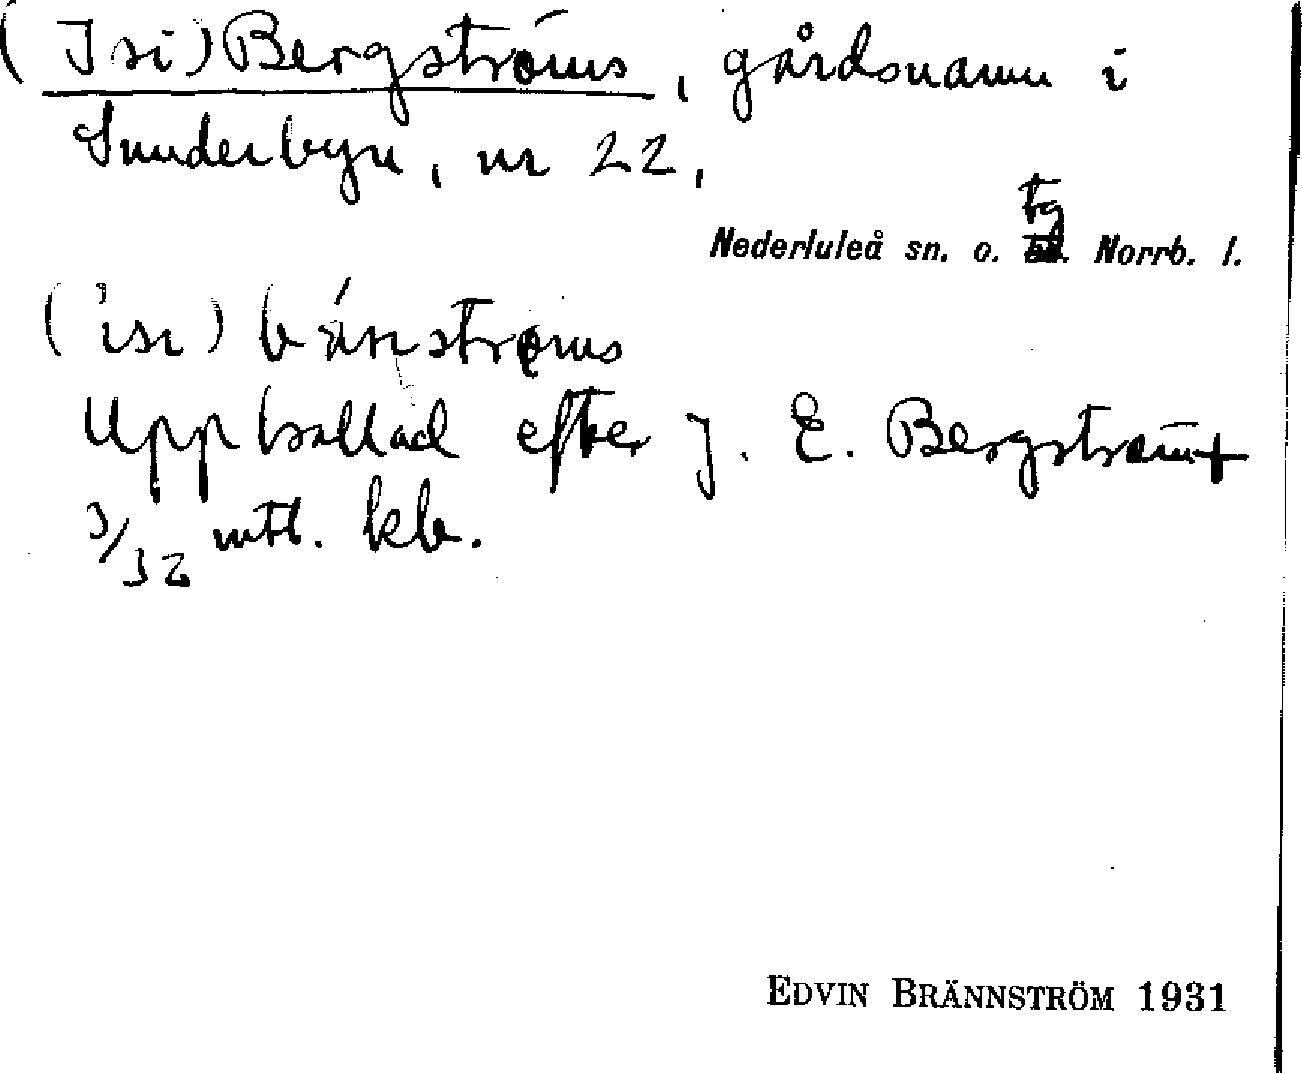 (Isi) Bergströms, gårdsnamn i
Sunderbyn, nr 22,
tg
Nederluleå sn. o. Norrb. l.
Uppkallad efter J. E. Bergström +
3/32 mtl. kb.
EDVIN BRÄNNSTRÖM 1931